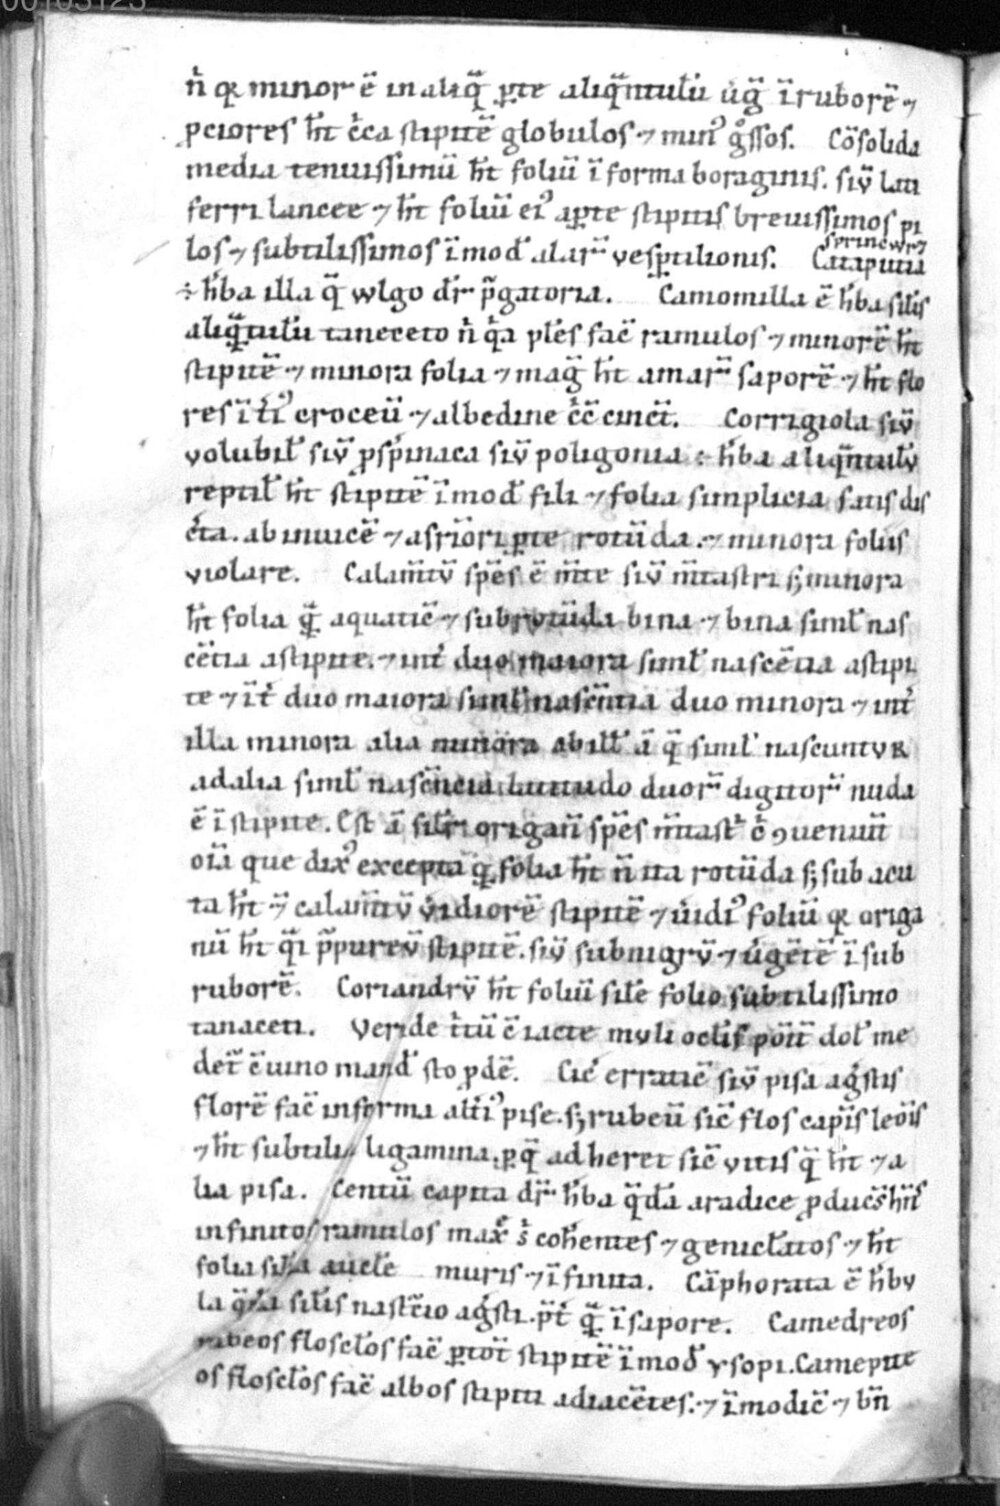 n̄ q minor ē in aliq̄ ꝑte aliq̄ntulū ūḡ ī ruborē ⁊
ꝑciores h̄t c̄ca stipitē globulos ⁊ min᷒ g̊ssos. Cōsolida
media tenuissimū h̄t foliū ī forma boraginis. siv̄ lan
ferri lancee ⁊ h̄t foliū ei᷒ aꝑte stipitis breuissimos pi
sprincwrz
los ⁊ subtilissimos ī mod̄ alaꝝ vesꝑtilionis. Cataputia
÷ h̄ba illa q̄ wlgo dr̄ p̄gatoria. Camomilla ē h̄ba sil̄is
aliq̄tulū taneceto n̄ q̄a pl̄es fac̄ ramulos ⁊ minorē h̄t
stipitē ⁊ minora folia ⁊ maḡ h̄t amaꝝ saporē ⁊ h̄t flo
res ī t̄i᷒ croceū ⁊ albedine c̄c̄ cinct̄. Corrigiola siv̄
volubil̄ siv̄ ꝓsp̄inaca siv̄ poligonia ÷ h̄ba aliq̄ntulv̄
reptil̄ h̄t stipitē ī mod̄ fili ⁊ folia simplicia satis dis
c̄ta. ab inuicē ⁊ asr̄iori ꝑte rotūda. ⁊ minora foliis
violare. Calam̄tv̄ sp̄es ē m̄te siv̄ m̄tastri ꝫ minora
h̄t folia q̄ aquatic̄ ⁊ subrotūda bina ⁊ bina siml̄ nas
cētia astipite. ⁊ int̄ duo maiora siml̄ nascētia astipi
te ⁊ īt̄ duo maiora siml̄ nascn̄tia duo minora ⁊ int̄
illa minora alia minora ab ill̄ ā q̄ siml̄ nascuntvR
ad alia siml̄ nascn̄cia latitudo duoꝝ digitoꝝ nuda
ē ī stipite. Est ā sil̄r origan̄ sp̄es m̄tast̄ c̄ ꝯueniūt
oīa que dix᷒ excepta q̄ folia h̄t n̄ ita rotūda ꝫ sub acu
ta h̄t ⁊̄ calam̄tv̄ v̄idiorē stipitē ⁊ ūidi᷒ foliū q origa
nū h̄t q̄i p̄purev̄ stipitē. siv̄ subnigrv̄ ⁊ ūgētē ī sub
ruborē. Coriandrv̄ h̄t foliū sil̄e folio subtilissimo
tanaceti. Veride t̄tū c̄ lacte mvli ocl̄is pōit̄ dol̄ me
det̄ c̄ uino mand̄ sto ꝓdē. Cic̄ erratic̄ siv̄ pisa ag̊stis
florē fac̄ in forma alt̄i᷒ pise. ꝫ rubeū sic̄ flos capīs leōis
⁊ h̄t subtilia ligamina. ꝑq̄ adheret sic̄ vitis q̄ h̄t ⁊ a
lia pisa. Centū capita dr̄ h̄ba q̄dā aradice ꝓduc̄s h̄n̄s
infinitos ramulos max̄ s̄ coh̄entes ⁊ genicl̄atos ⁊ h̄t
folia sil̄ia aucl̄e muris ⁊ ī finita. Cāphorata ē h̄bv
la q̄dā sil̄is nastc̄io ag̊sti. p̄t̄ q̄ ī sapore. Camedreos
rubeos floscl̄os fac̄ ꝑtot̄ stipitē ī mod̄ ysopi. Camepite
os floscl̄os fac̄ albos stipiti adiacētes. ⁊ īmodic̄ ⁊ bn̄